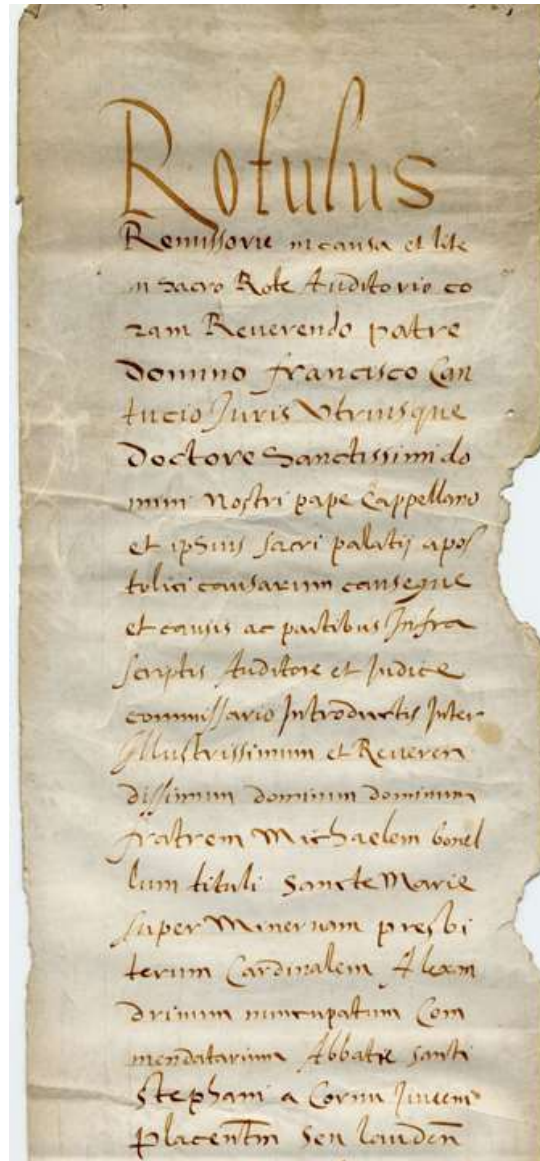 Rotulus
Remissorie in causa et lite
in sacro Rote Auditorio co
ram Reuerendo patre
Domino francisco Can
tucio Juris Vtriusque
Doctore Sanctissimi do
mini Nostri pape Cappellano
et ipsius sacri palatij apos
tolici causarum causeque
et causis ac partibus Infra
scriptis Auditore et Judice
commissario Introductis Inter
Illustrissimum et Reueren
dissimum dominum dominum
fratrem Michaelem bonel
lum tituli Sancte Marie
super Mineruam presbi
terum Cardinalem Alexan
drinum nuncupatum Com
mendatarium Abbatie santi
Stephani a Cornu
placentin seu lauden